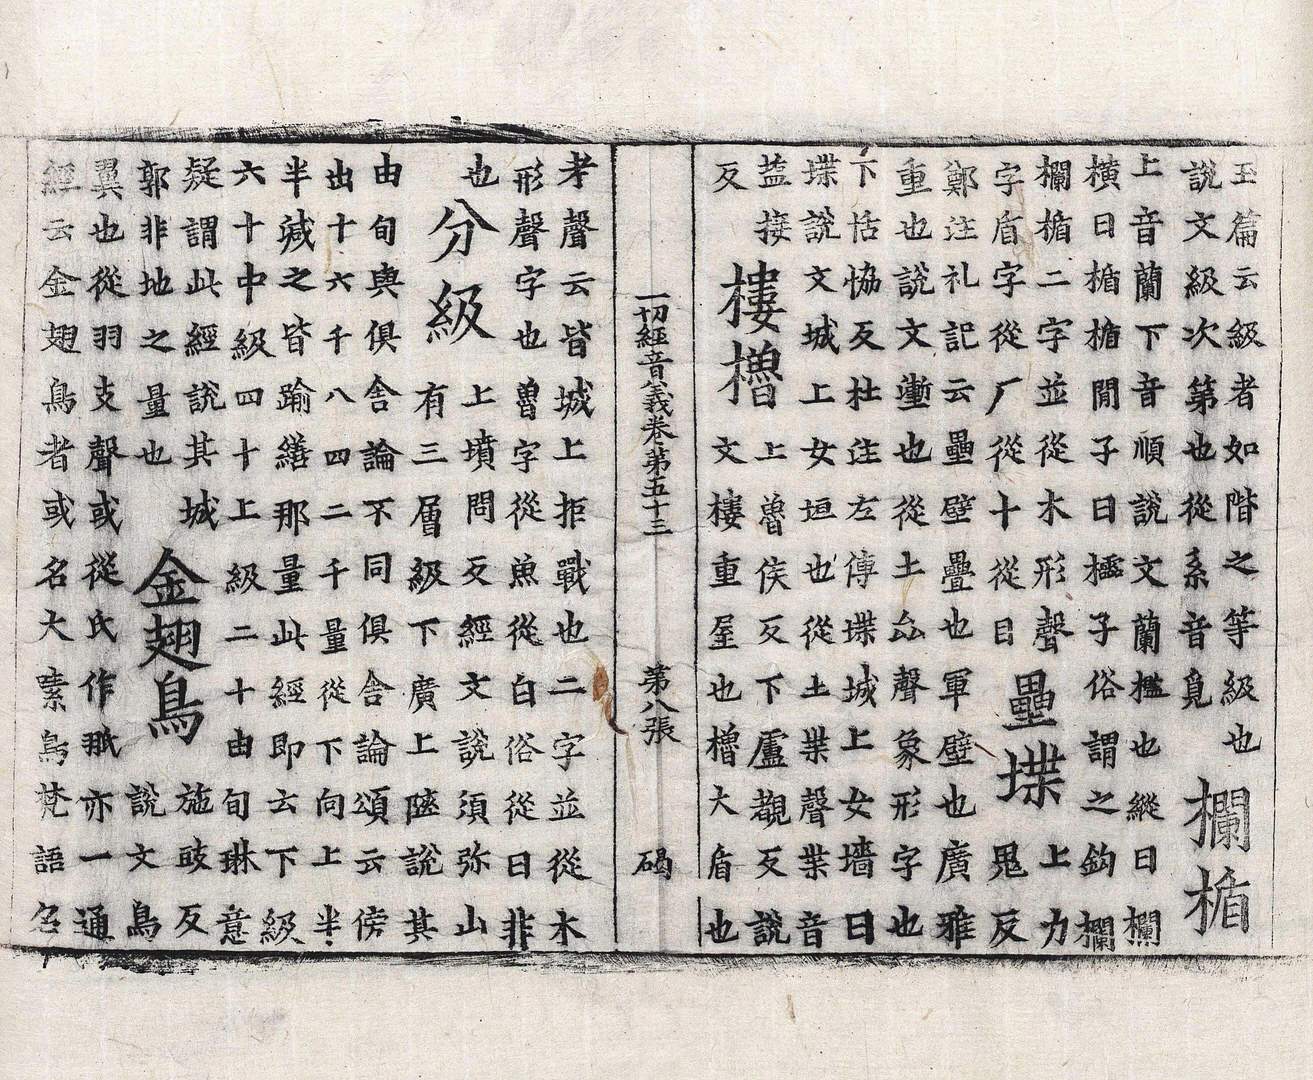 玉篇云級者如階之等級也欄楯
說文級次第也從系音覓
上音蘭下音順說文蘭檻也縱曰欄
橫曰楯楯閒子曰櫺子俗謂之鈎欄
欄楯二字並從木形聲壘堞上力
字盾字從𠂆從十從目鬼反
鄭注礼記云壘壁疊也軍壁也廣雅
重也說文壍也從土厽聲象形字也
下恬恊反杜注左傳堞城上女墻曰
堞說文城上女垣也從土枼聲枼音
葢接樓櫓上魯侯反下盧覩反說
反文樓重屋也櫓大盾也
一切經音義卷第五十三 第八張 碣
考聲云皆城上拒戰也二字並從木
形聲字也魯字從魚從白俗從日非
也分級上墳問反經文說須弥山
有三層級下廣上陿說其
由旬與俱舍論不同俱舍論頌云傍
出十六千八四二千量從下向上半
半減之皆踰繕那量此經即云下級
六十中級四十上級二十由旬琳意
疑謂此經說其城金翅鳥施豉反
郭非地之量也說文鳥
翼也從羽支聲或從氏作䎵亦一通
經云金翅鳥者或名大嗉鳥梵語名